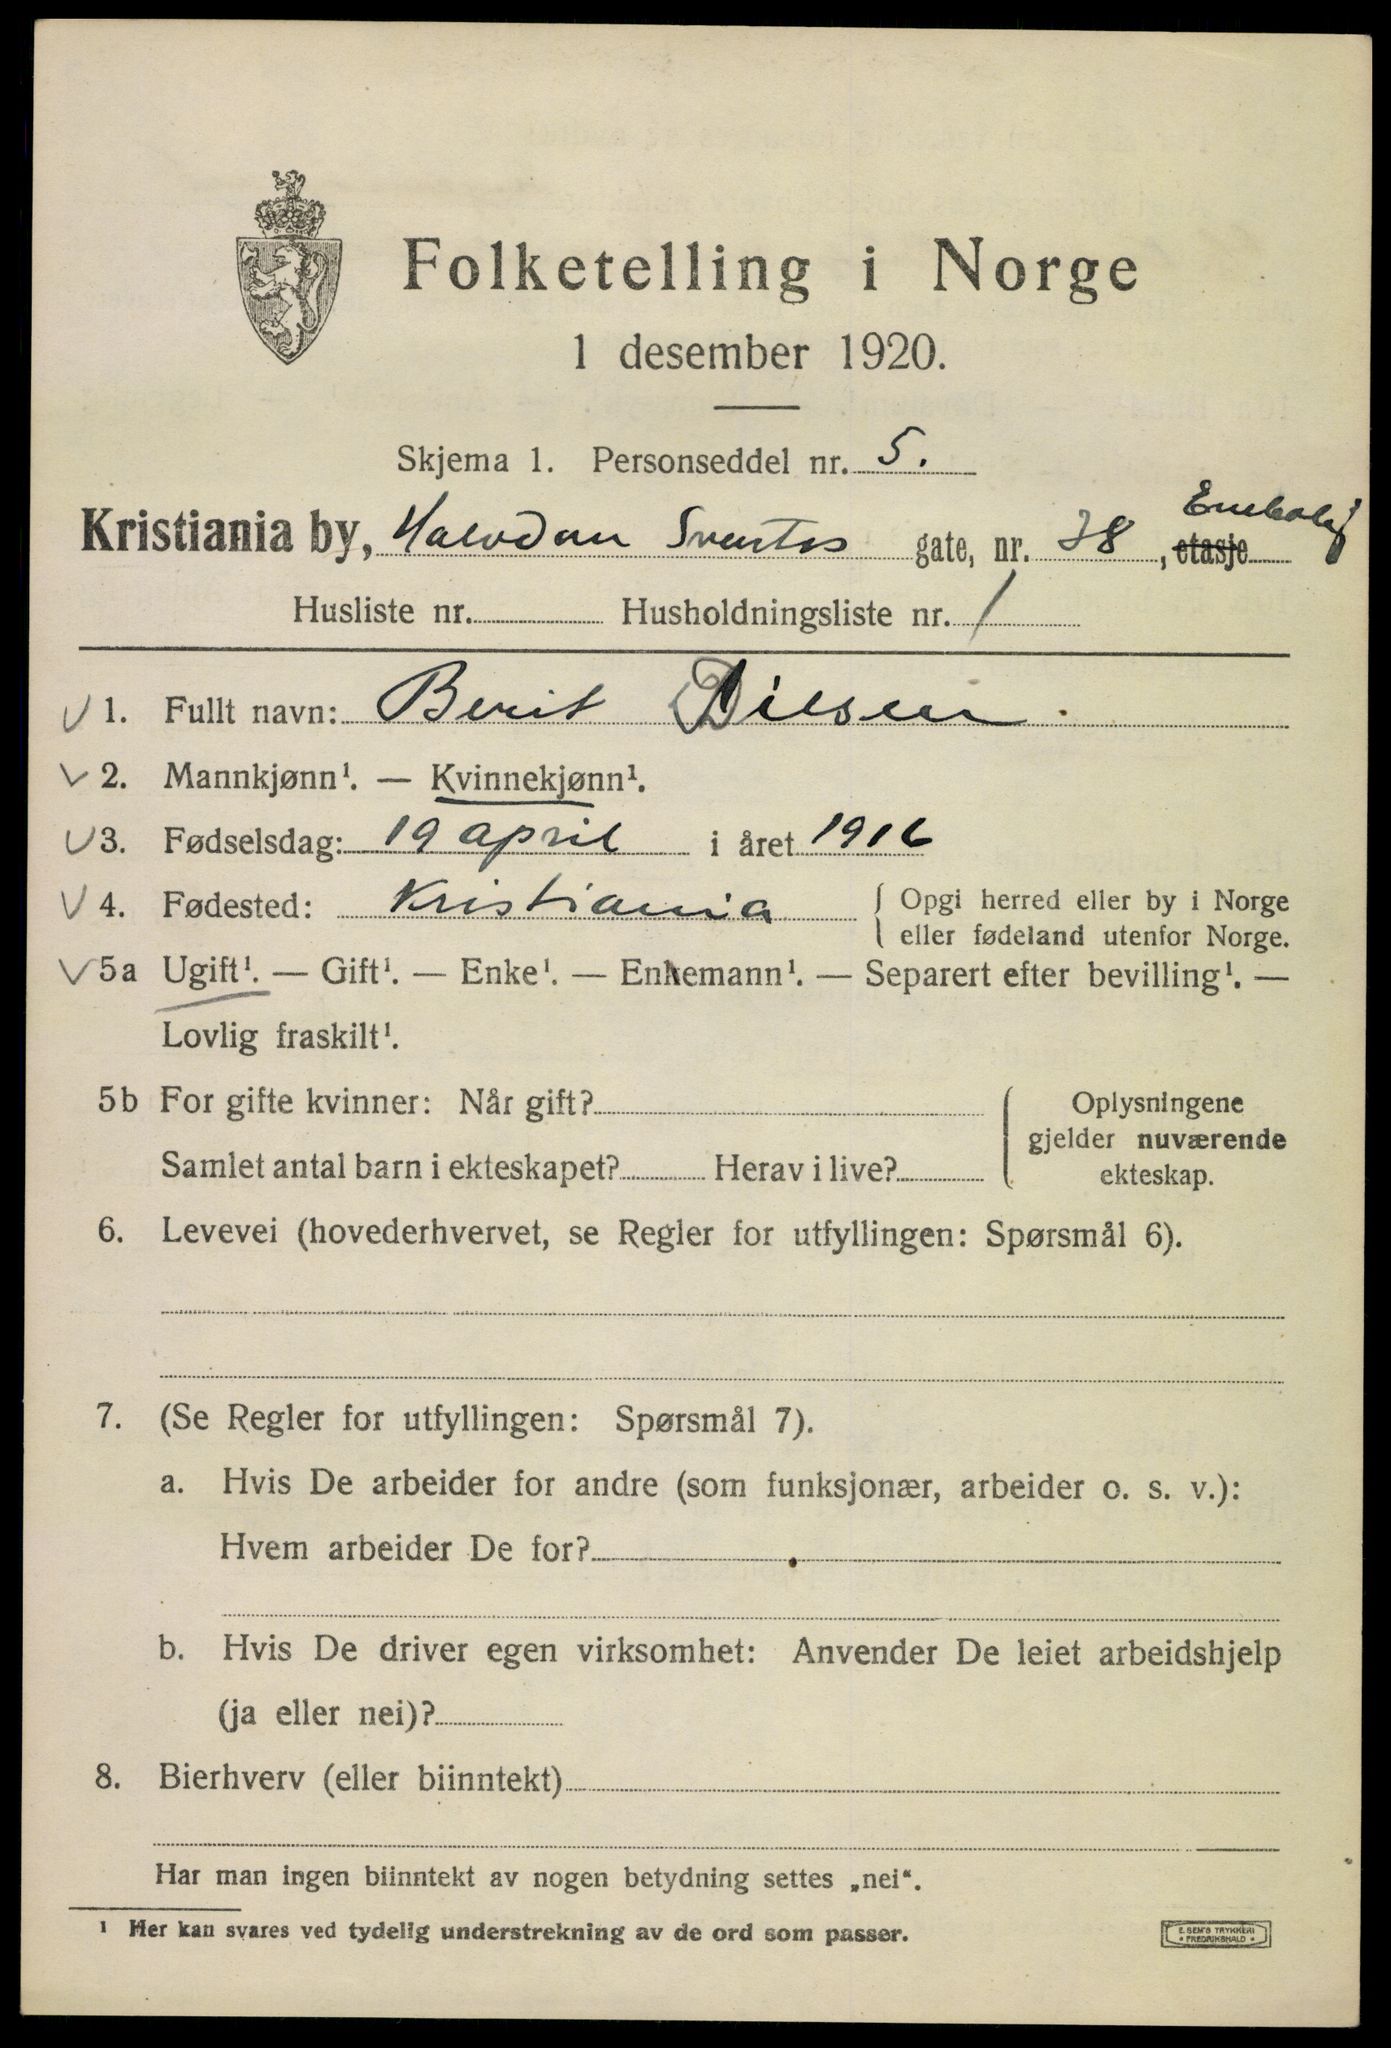 Folketelling i Norge
1 desember 1920.
Skjema 1. Personseddel nr. 5.
Kristiania by, Halvdan Svartes gate, nr. 38, etasje Enebolig
Husliste nr. Husholdningsliste nr. 1
1. Fullt navn: Berit Dilsen
2. Mannkjønn¹. — Kvinnekjønn¹.
3. Fødselsdag: 19 april i året 1916
4. Fødested: Kristiania { Opgi herred eller by i Norge
eller fødeland utenfor Norge.
5a Ugift¹. — Gift¹. — Enke¹. — Enkemann¹. — Separert efter bevilling¹. —
Lovlig fraskilt¹.
5b For gifte kvinner: Når gift? Oplysningene
gjelder nuværende
Samlet antal barn i ekteskapet? Herav i live? ekteskap.
6. Levevei (hovederhvervet, se Regler for utfyllingen: Spørsmål 6).
7. (Se Regler for utfyllingen: Spørsmål 7).
a. Hvis De arbeider for andre (som funksjonær, arbeider o. s. v.):
Hvem arbeider De for?
b. Hvis De driver egen virksomhet: Anvender De leiet arbeidshjelp
(ja eller nei)?
8. Bierhverv (eller biinntekt)
Har man ingen biinntekt av nogen betydning settes „nei“.
¹ Her kan svares ved tydelig understrekning av de ord som passer.
E. SEM'S TRYKKERI
FREDRIKSHALD